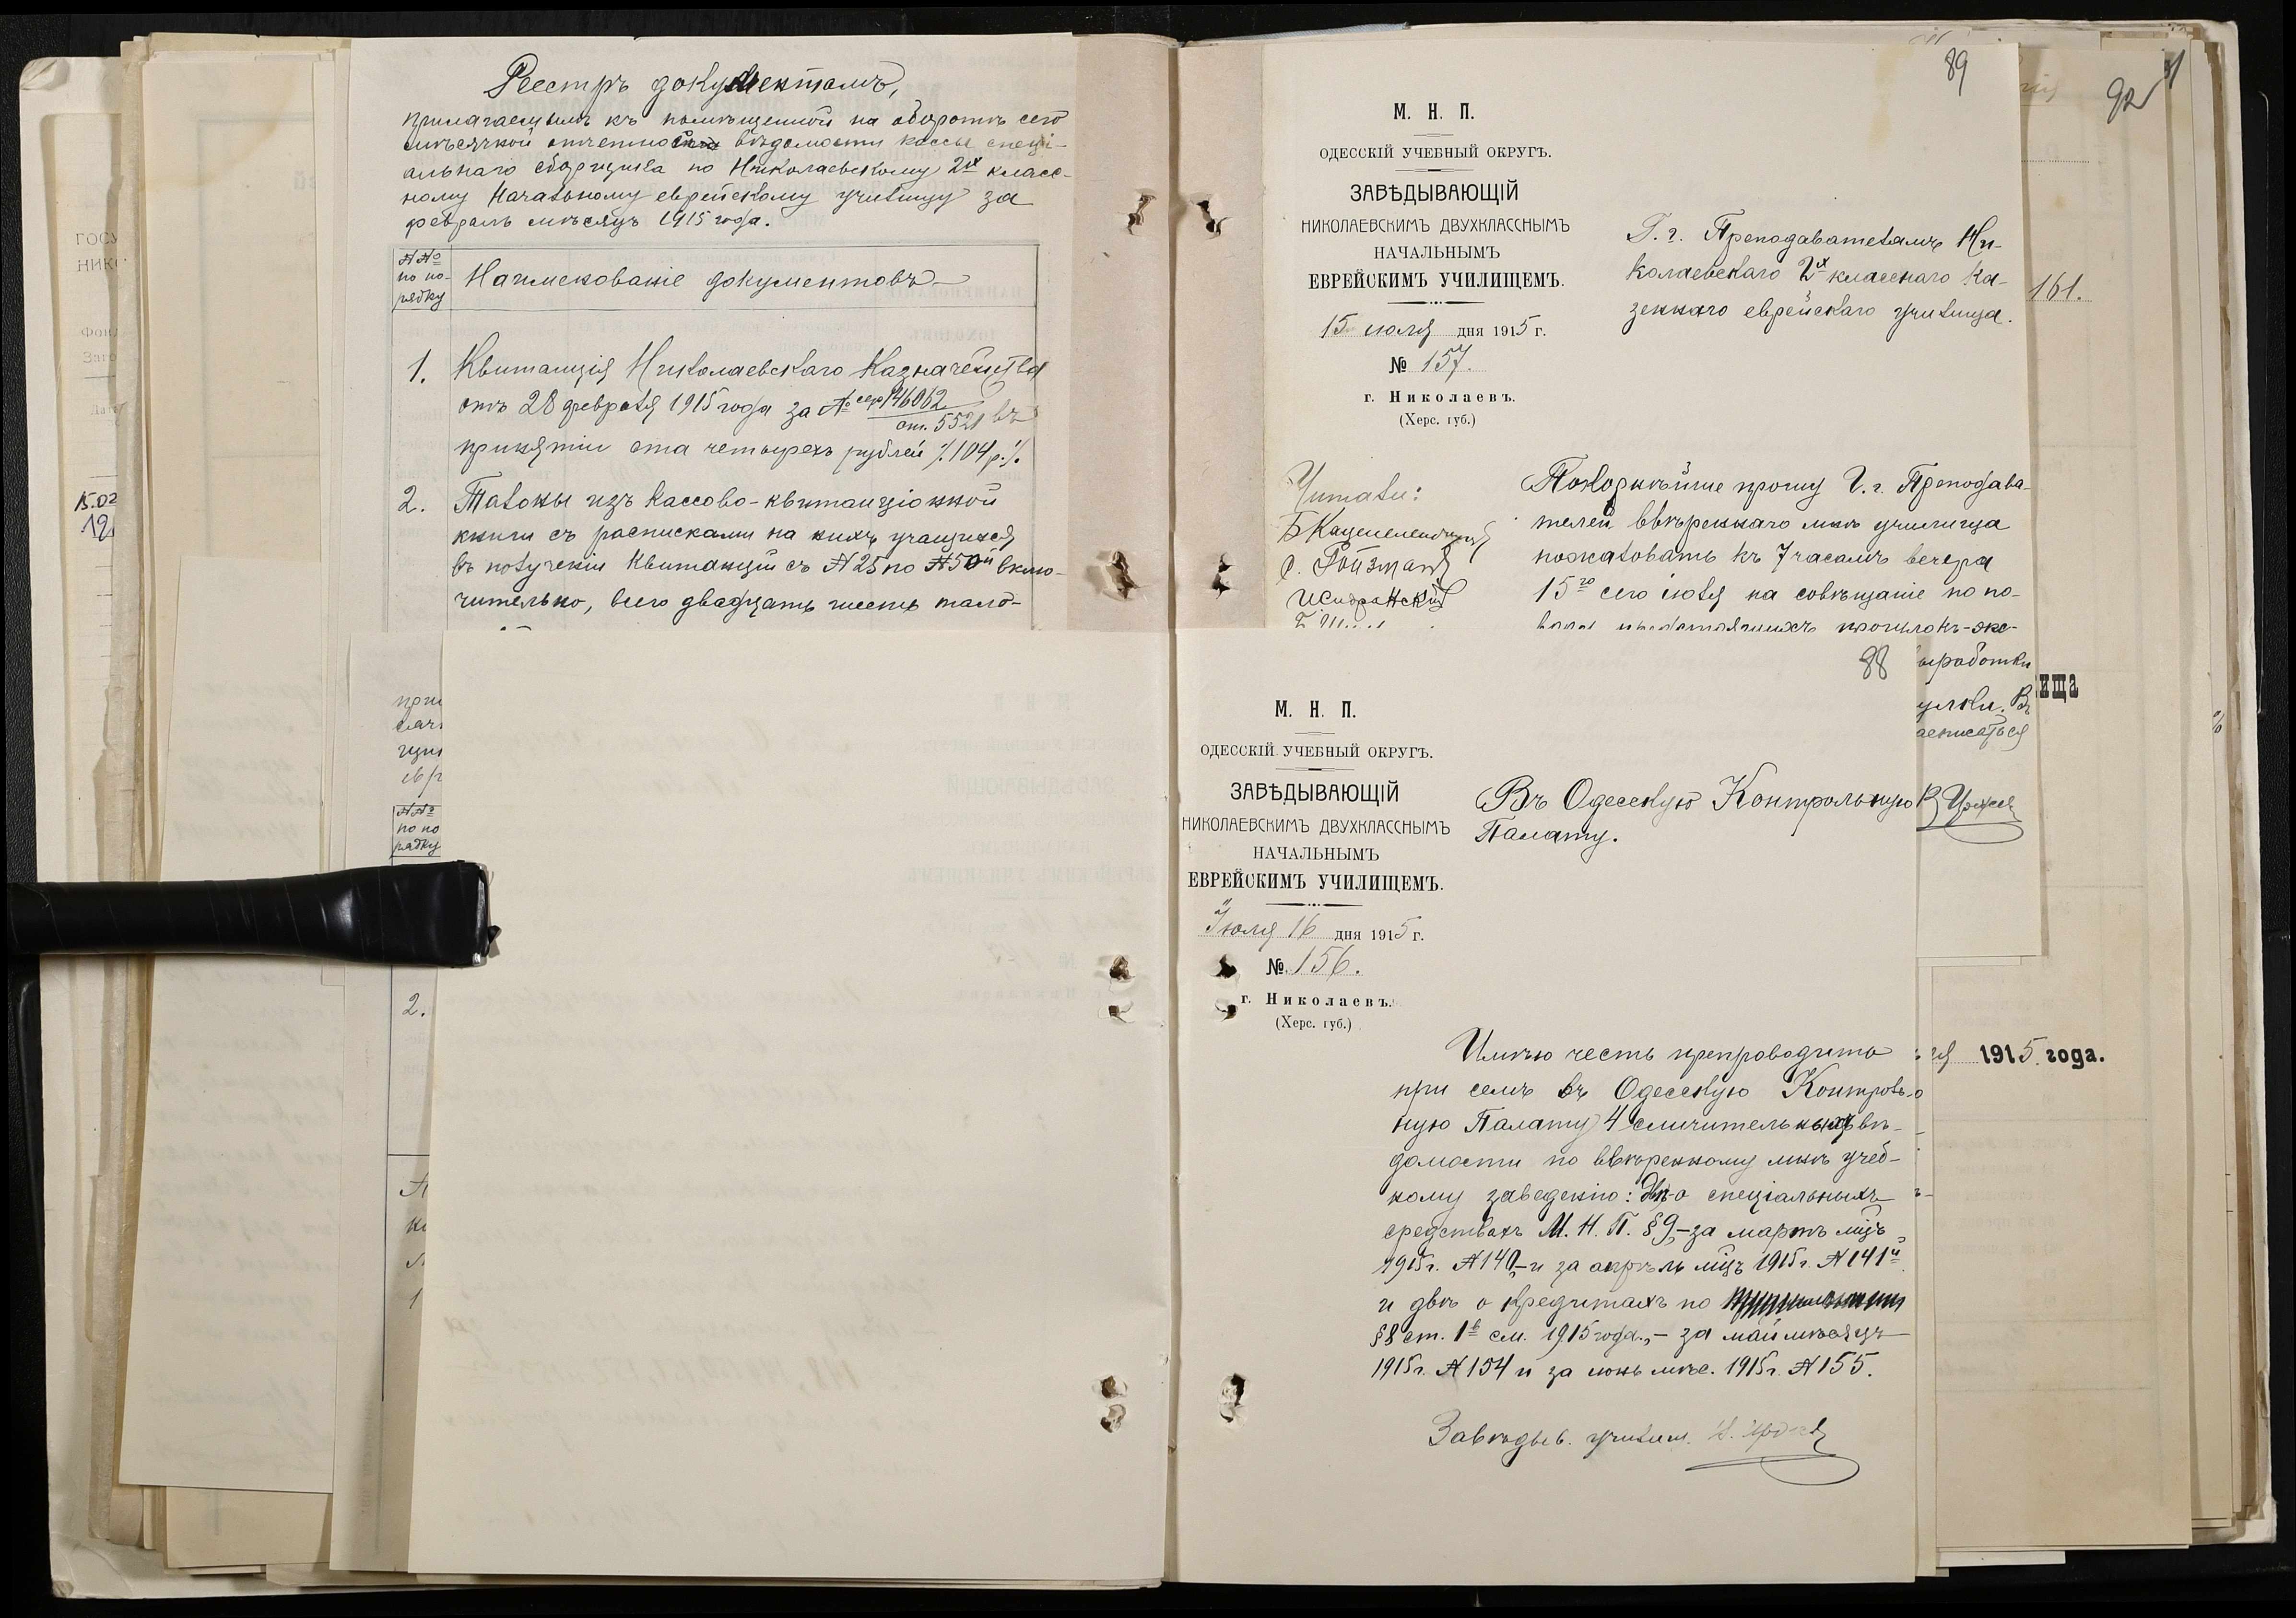 Реестръ документамъ,
прилагаемымъ къ помѣщенной на оборотѣ сего
мѣсячной отчетной вѣдомости кассы спеці-
альнаго сборщика по Николаевскому 2х класс-
ному Начальному еврейскому училищу за
февраль мѣсяцъ 1915 года.
№№
по по-
рядку
Наименованіе документовъ
1. Квитанція Николаевскаго Казначейства
отъ 28 февраля 1915 года за № 146062
ст. 5521 въ
принятіи ста четырехъ рублей /.104 р./.
2. Талоны изъ Кассово-квитанціонной
книги съ расписками на нихъ учащихся
въ полученіи Квитанцій съ №25 по №50й вклю-
чительно, всего двадцать шесть тало-
ГОСУ
НИК
Фон
15.02
121
при
ев
№№
по по
рядку
2.
89
М. Н. П.
ОДЕССКІЙ УЧЕБНЫЙ ОКРУГЪ.
ЗАВѢДЫВАЮЩІЙ
НИКОЛАЕВСКИМЪ ДВУХКЛАССНЫМЪ
НАЧАЛЬНЫМЪ
ЕВРЕЙСКИМЪ УЧИЛИЩЕМЪ.
15 іюля дня 1915 г.
№ 157.
г. Николаевъ.
(Херс. губ.)
Г. г. Преподавателямъ Ни-
колаевскаго 2х класснаго Ка-
зеннаго еврейскаго училища.
Покорнѣйше прошу Г. г. Преподава-
телей ввѣреннаго мнѣ училища
пожаловать къ 7 часамъ вечера
15го сего іюля на совѣщаніе по по-
Читали:
С. Ройзманъ
92
161.
88
ыработки
аписаться
ища
М. Н. П.
ОДЕССКІЙ УЧЕБНЫЙ ОКРУГЪ.
ЗАВѢДЫВАЮЩІЙ
НИКОЛАЕВСКИМЪ ДВУХКЛАССНЫМЪ
НАЧАЛЬНЫМЪ
ЕВРЕЙСКИМЪ УЧИЛИЩЕМЪ.
Іюля 16 дня 1915 г.
№ 156.
г. Николаевъ.
(Херс. губ.)
Въ Одесскую Контрольную
Палату.
Имѣю честь препроводить
при семъ въ Одесскую Контроль-
ную Палату 4 сличительныхъ вѣ-
домости по ввѣренному мнѣ учеб-
ному заведенію: двѣ о спеціальныхъ
средствахъ М. Н. П. §9,-за мартъ мцъ
1915 г. №140,-и за апрѣль мцъ 1915 г. №141й
и двѣ о кредитахъ по
§8 ст. 1й см. 1915 года.,- за май мѣсяцъ
1915 г. №154 и за іюнь мѣс. 1915 г. №155.
Завѣдыв. училищ.
1915 года.